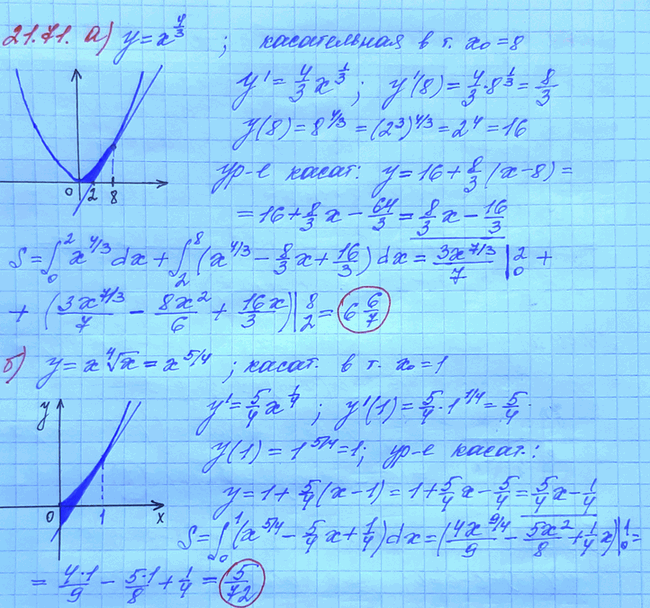 21.71. а) y = x^{4/3} ; касательная в т. x₀ = 8
y' = 4/3 x^{1/3} ; y'(8) = 4/3 · 8^{1/3} = 8/3
y(8) = 8^{4/3} = (2³)^{4/3} = 2⁴ = 16
ур-е касат: y = 16 + 8/3 (x - 8) =
= 16 + 8/3 x - 64/3 = 8/3 x - 16/3
0 2 8
S = ∫₀² x^{4/3} dx + ∫₂⁸ (x^{4/3} - 8/3 x + 16/3) dx = 3x^{7/3}/7 |₀² +
+ (3x^{7/3}/7 - 8x²/6 + 16x/3) |₂⁸ = 6 6/7
б) y = x ⁴√x = x^{5/4} ; касат. в т. x₀ = 1
y' = 5/4 x^{1/4} ; y'(1) = 5/4 · 1^{1/4} = 5/4.
y(1) = 1^{5/4} = 1; ур-е касат.:
y = 1 + 5/4 (x - 1) = 1 + 5/4 x - 5/4 = 5/4 x - 1/4
y
0 1 x
S = ∫₀¹ (x^{5/4} - 5/4 x + 1/4) dx = (4x^{9/4}/9 - 5x²/8 + 1/4 x) |₀¹ =
= 4·1/9 - 5·1/8 + 1/4 = 5/72